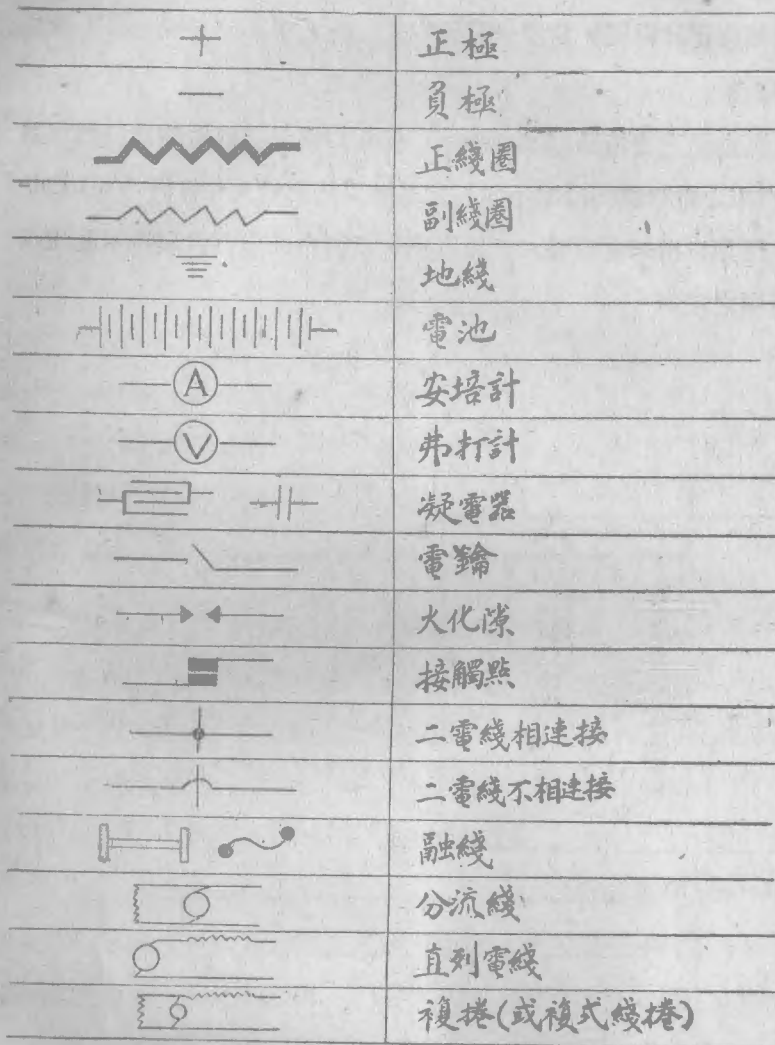 + 正極
— 負極
正綫圈
副綫圈
地綫
電池
A 安培計
V 弗打計
凝電器
電鑰
火化隙
接觸點
二電綫相連接
二電綫不相連接
融綫
分流綫
直列電綫
複捲(或複式綫捲)